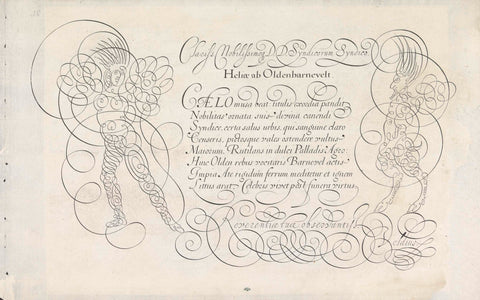 Nobilissimoq. D.D. Syndicorum Syndico
Heliæ ab Oldenbarnevelt.
CÆLO musa beat. titulis exordia pandit
Nobilitas ornata suis. divina canendi
Syndice. certa salus urbis. qui sanguine claro
Censeris, doctosque vales ostendere vultus
Maiorum. Rutilans in dulci Palladis Agro.
Hinc Olden rebus vocitaris Barnevel actis
Impia Ate rigidum ferrum meditetur et ignem
Littus arat. Celebris vivet post funera virtus.
Reverentiæ tuæ observantiss.